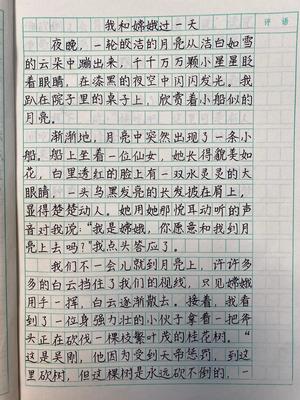 评 语
我和嫦娥过一天
夜晚，一轮皎洁的月亮从洁白如雪
的云朵中蹦出来，千千万万颗小星星眨
着眼睛，在漆黑的夜空中闪闪发光。我
趴在院子里的桌子上，欣赏着小船似的
月亮。
渐渐地，月亮中突然出现了一条小
船。船上坐着一位仙女，她长得貌美如
花，白里透红的脸上有一双水灵灵的大
眼睛，一头乌黑发亮的长发披在肩上，
显得楚楚动人。她用她那悦耳动听的声
音对我说：“我是嫦娥，你愿意和我到月
亮上去吗？”我点头答应了。
我们不一会儿就到月亮上，许许多
多的白云挡住了我们的视线，只见嫦娥
用手一挥，白云逐渐散去。接着，我看
到了一位身强力壮的小伙子拿着一把斧
头正在砍伐一棵枝繁叶茂的桂花树。“
这是吴刚，他因为受到天帝惩罚，到这
里砍树，但这棵树是永远砍不倒的，一